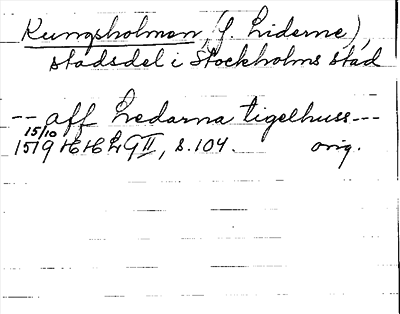 Kungsholmen (f. Liderne),
stadsdel i Stockholms stad
-- aff Ledarna tigelhuss ---
15/10
1519 HH LG II, s. 104. orig.